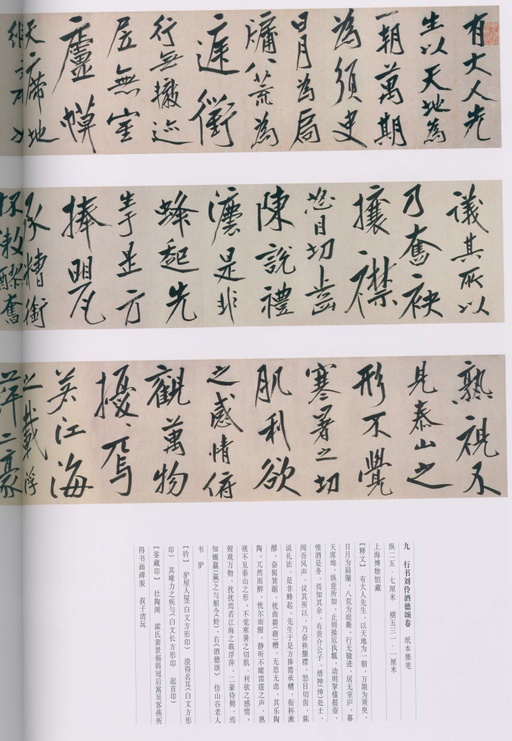 有大人先
生以天地為
一朝萬期
為須臾
日月為扃
牖八荒為
庭衢
行無轍迹
居無室
廬幙
天席地
議其所以
乃奮袂
攘襟
怒目切齒
陳說禮
灋是非
蜂起先
生于是方
捧甖
承槽銜
杯漱醪奮
熟視不
見泰山之
形不覺
寒暑之切
肌利欲
之感情俯
觀萬物
擾擾焉
若江海
之載浮
萍二豪
九 行书刘伶酒德颂卷 纸本墨笔
纵二五·七厘米 横五三一·一厘米
上海博物馆藏
【释文】有大人先生,以天地为一朝,万期为须臾,
日月为扃牖,八荒为庭衢。行无辙迹,居无室庐,幕
天席地,纵意所如。止则操卮执觚,动则挈榼提壶,
惟酒是务,焉知其余。有贵介公子,搢绅处士,
闻吾风声,议其所以,乃奋袂攘襟,怒目切齿,陈
说礼法,是非蜂起。先生于是方捧罂承槽,衔杯漱
醪,奋髯箕踞,枕曲藉(籍)糟,无思无虑,其乐陶
陶。兀然而醉,恍尔而醒,静听不闻雷霆之声,熟
视不见泰山之形,不觉寒暑之切肌,利欲之感情。
俯观万物,扰扰焉若江海之载浮萍。二豪侍侧,焉
知蜾蠃之与螟令(蛉)。右《酒德颂》 仿山谷老人
书 驴
【钤】 驴屋人屋(白文方形印) 浪得名耳(白文方形
印) 其喙力之疾与(白文长方形印 起首印)
【鉴藏印】 壮陶阁 霍氏裴景福弱冠后寓吴客燕所
得书画碑版 叔子清玩